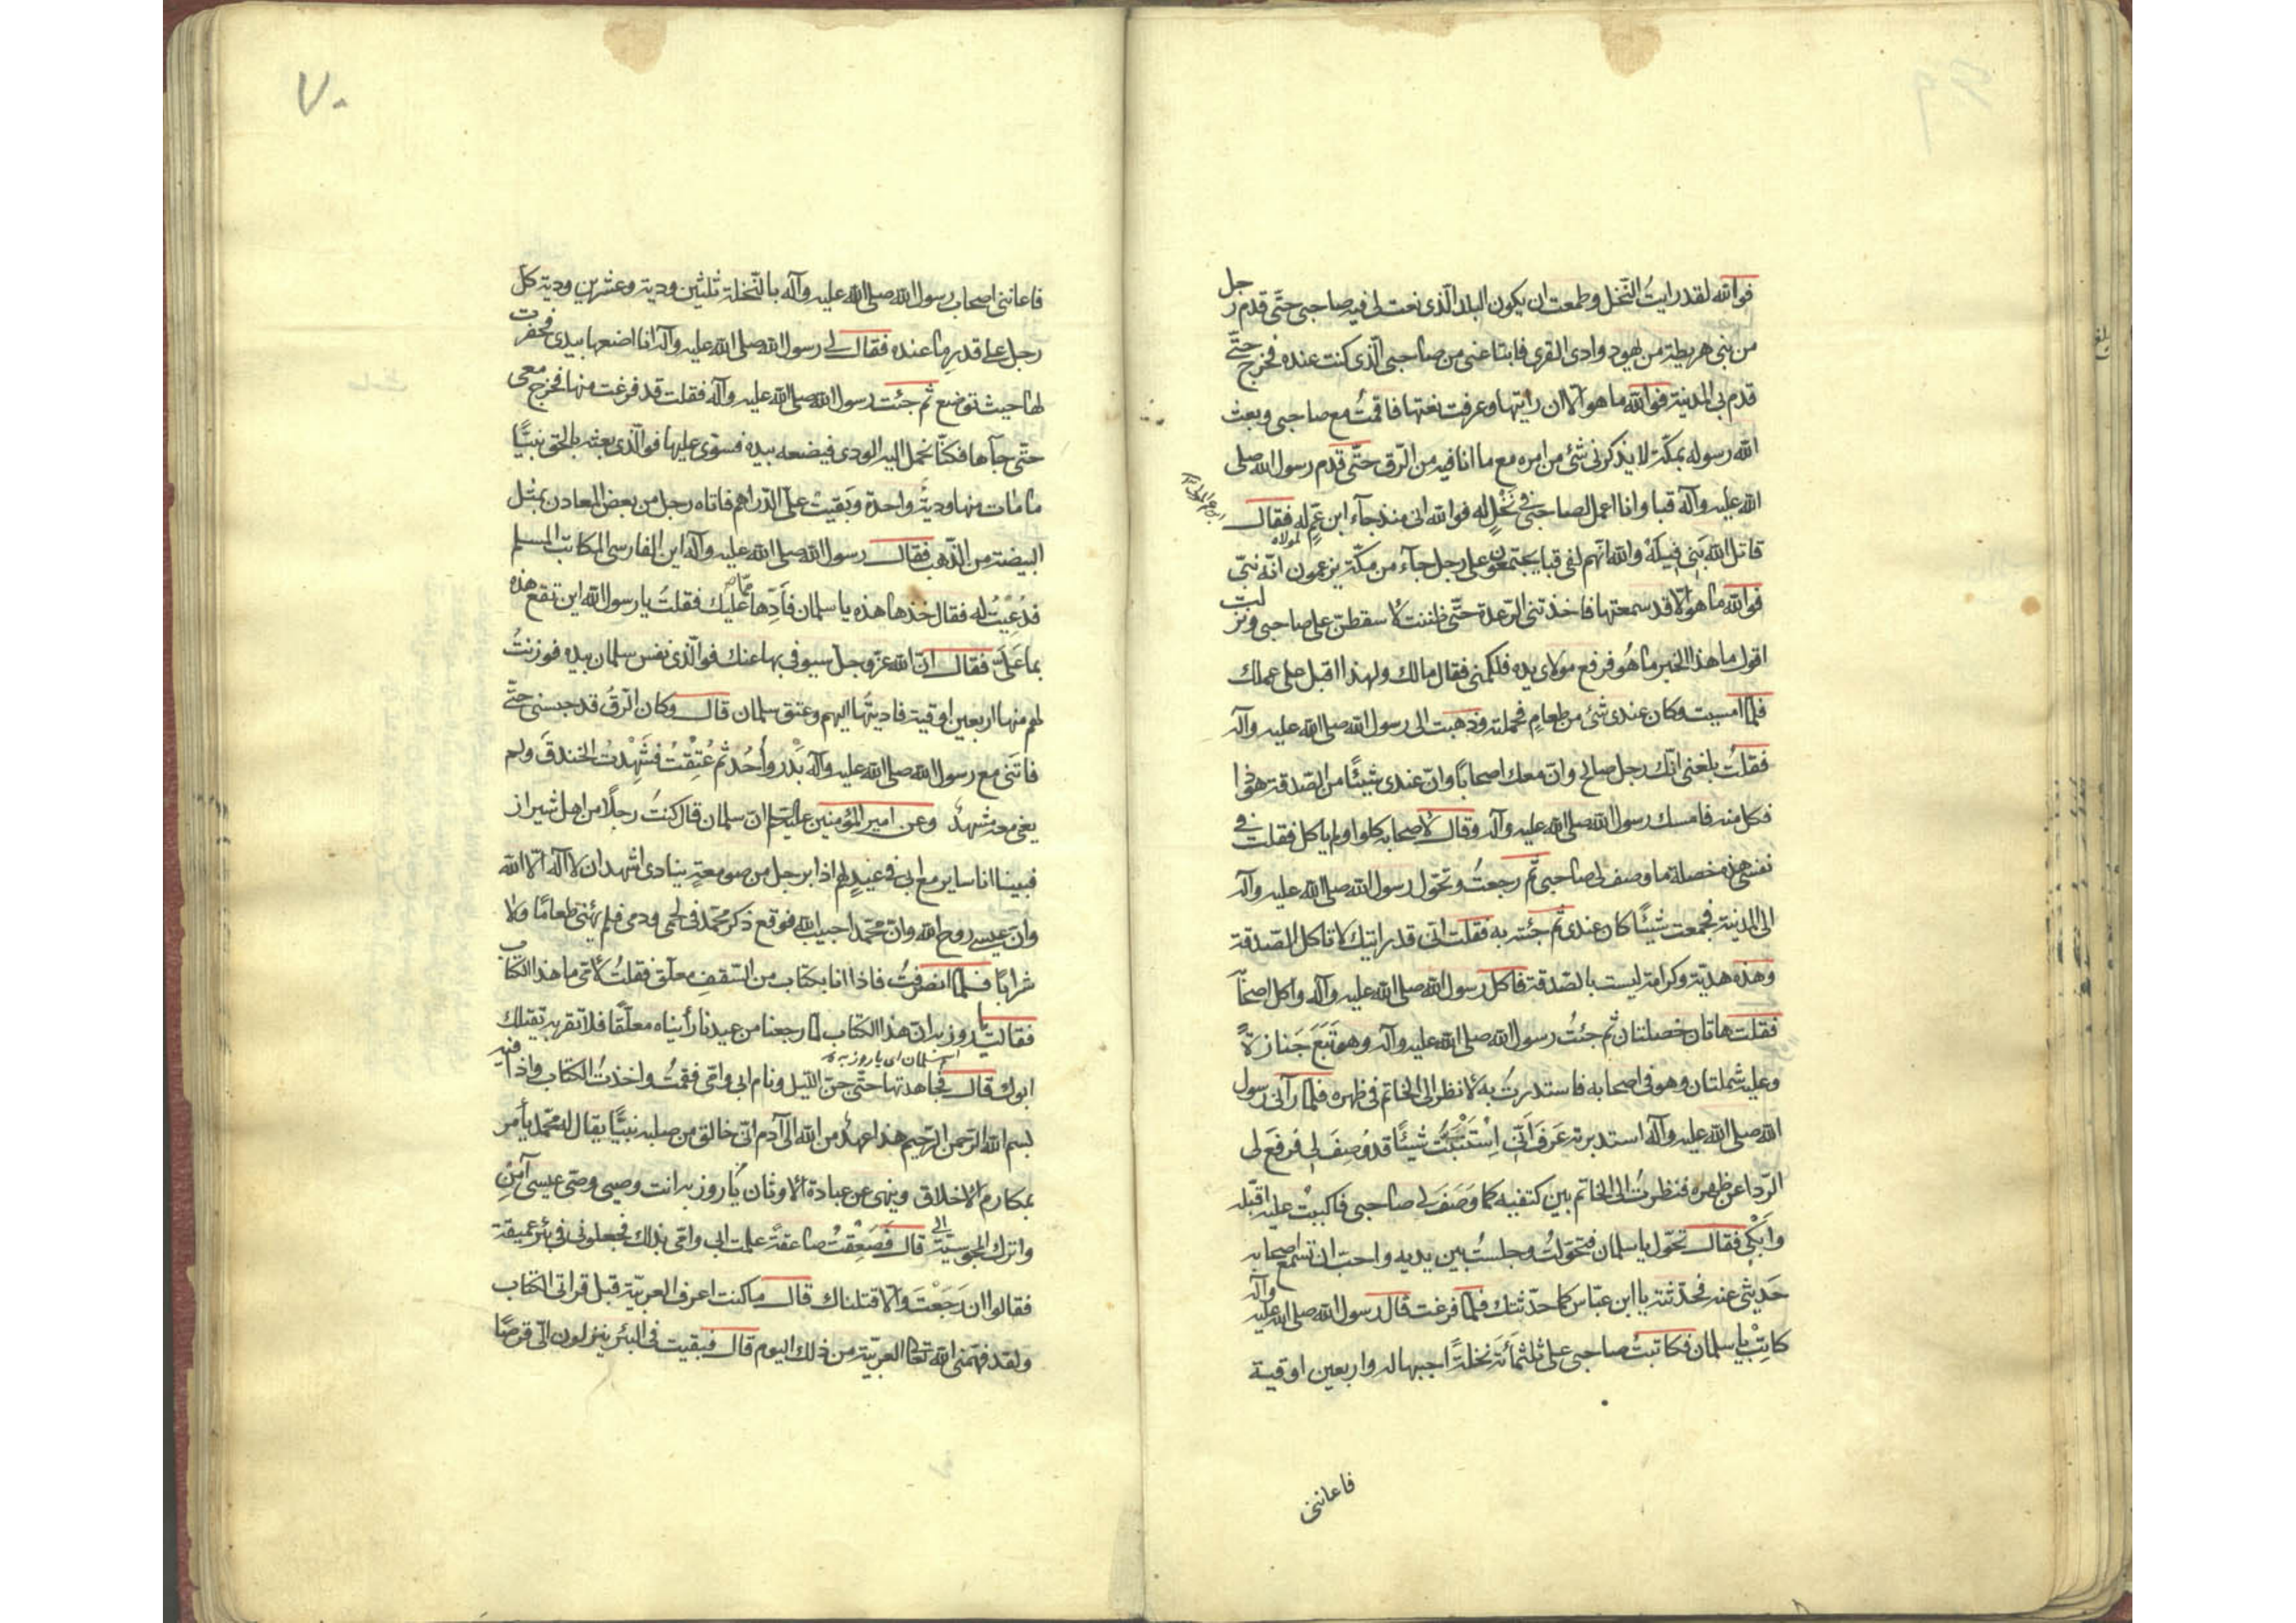 فوالله لقد رايتُ النّخل وطمعت ان يكون البلد الّذى نعت لى فيه صاحبى حتّى قدم رجل
من بنى هريطة من يهود وادى القرى فابتاعنى من صاحبى الّذى كنت عنده فخرج حتّى
قدم بى المدينة فوالله ما هو الّا ان رايتها وعرفت نعتها فاقمتُ مع صاحبى وبعث
الله رسوله بمكّة لا يذكر نى شئ من امره مع ما انا فيه من الرّق حتّى قدم رسول الله صلى
الله عليه وآله قبا وانا اعمل لصاحبى فى نَخْلٍ له فوالله انى منذ جآء ابن عَمٍّ له فقال لمولاه
قاتل الله بَنى قَيْلَةَ والله انّهم لفى قبا يجتمعون على رجل جآء من مكّة يزعمون انّه نبىّ
فوالله ما هو الّا قد سمعتها فاخذتنى الرّعدة حتّى ظننت لاسقطنّ على صاحبى ونزلت
اقول ما هذا الخبر ما هُو فرفع مولاى يده فلكمنى فقال مالك ولهذا اقبل على عملك
فلمّا امسيت وكان عندى شئ من طعامٍ فحملته وذهبت الى رسول الله صلى الله عليه وآله
فقلتُ بلغنى انّك رجل صالح وانّ معك اصحابًا وانّ عندى شيئًا من الصّدقة فهو ذا
فكل منه فامسك رسول الله صلى الله عليه وآله وقال لاصحابه كلوا ولم ياكل فقلت فى
نفسى هذه خصلة ما وصف لى صاحبى ثمّ رجعتُ وتحوّل رسول الله صلى الله عليه وآله
الى المدينة فجمعت شيئًا كان عندى ثمّ جئته به فقلت انّى قد رايتك لا تاكل الصّدقة
وهذه هديّة وكرامة ليست بالصّدقة فاكل رسول الله صلى الله عليه وآله واكل اصحابه
فقلت هاتان خصلتان ثم جئتُ رسول الله صلى الله عليه وآله وهو تَبَعَ جَنازةً
وعليه شملتان وهو فى اصحابه فاستدرتُ به لانظر الى الخاتم فى ظهره فلمّا رآنى رسول
الله صلى الله عليه وآله استدبرته عَرَفَ اَنّى اِسْتَثْبَتُّ شيئًا قد وُصِفَ لى فرفعَ لى
الرّدا عن ظهره فنظرت الى الخاتم بين كتفيه كما وَصَفَ لى صاحبى فاكببْت عليه اقبّله
وابكى فقال تحوّل يا سلمان فتحوّلتُ وجلستُ بين يديه واحب ان تسمع اصحابه
حَديثى عنه فحدّثته يا ابن عبّاس كما حدّثتك فلمّا فرغت قال رسول الله صلى الله عليه وآله
كاتِبْ يا سلمان فكاتبتُ صاحبى على ثلثمأة نخلةً احببها له واربعين اوقية
فاعاننى
٧٠
فاعاننى اصحاب رسول الله صلى الله عليه وآله بالنّخلة ثلثين ودية وعشرين ودية كل
رجل على قدر ما عنده فقال لى رسول الله صلى الله عليه وآله انا اضعها بيدى فحفرت
لها حيث توضع ثم جئت رسول الله صلى الله عليه وآله فقلت قد فرغت منها فخرج معى
حتّى جآءها فكنّا نحمل اليه الودى فيضعه بيده فسوى عليها فوالّذى بعثه بالحق نبيًّا
ما مات منها وديةٌ واحدة وبَقيت علىّ الدّراهم فاتاه رجل من بعض المعادن بمثل
البيضة من الذّهب فقال رسول الله صلى الله عليه وآله اين الفارسى المكاتب المسلم
فدُعيتُ له فقال خذها هذه يا سلمان فاَدِّها ممّا عليك فقلتُ يا رسول الله اين تقع هذه
بما علَىَّ فقال انّ الله عزّ وجلّ سيوفى بها عنك فوالّذى نفس سلمان بيده فوزنتُ
لهم منها اربعين اوقية فاديتُها اليهم وعتق سلمان قال وكان الرّقُ قد حبسنى حتّى
فاتنى مع رسول الله صلى الله عليه وآله بَدْر واُحُد ثم عُتِقْتُ فشَهِدْت الخندقَ ولم
يفتنى معه مشهدٌ وعن امير المؤمنين عليه السّلم انّ سلمان قال كنتُ رجلًا من اهل شيراز
فبينا انا ساير مع ابى فى عيدٍ لهم اذا برجل من صومعةٍ ينادى اشهد ان لا اله الّا الله
وانّ عيسى روح الله وانّ محمّدا حبيب الله فوقع ذكر محمّد فى لحمى ودمى فلم يهنئنى طعامًا ولا
شرابًا فلمّا انصرفتُ فاذا انا بكتاب من السّقفِ معلّق فقلتُ لامّى ما هذا الكتاب
فقالت يا روزبه انّ هذا الكتاب لما رجعنا من عيدنا رأيناه معلّقا فلا تقربه يقتلك
ابوك قال فجاهدتها حتّى جنّ اللّيل ونام ابى وامّى فقمتُ واخذتُ الكتاب واذا فيه
بسم الله الرّحمن الرّحيم هذا عهدٌ من الله الى آدم انّى خالق من صلبه نبيًّا يقال له محمّد يأمر
بمكارم الاخلاق وينهى عن عبادة الاوثان يا روزبه انت وصيى وصىّ عيسى آمِنْ
واترك المجوسيّة قال فصَعِقْتُ صاعقةً علمت ابى وامّى بذلك فجعلونى فى بئر عميقة
فقالوا ان رَجَعْتَ والّا قتلناك قال ما كنت اعرف العربيّة قبل قراتى الكتاب
ولقد فهّمنى الله تعالى العربيّة من ذلك اليوم قال فبقيت فى البئر ينزلون الىّ قرصًا